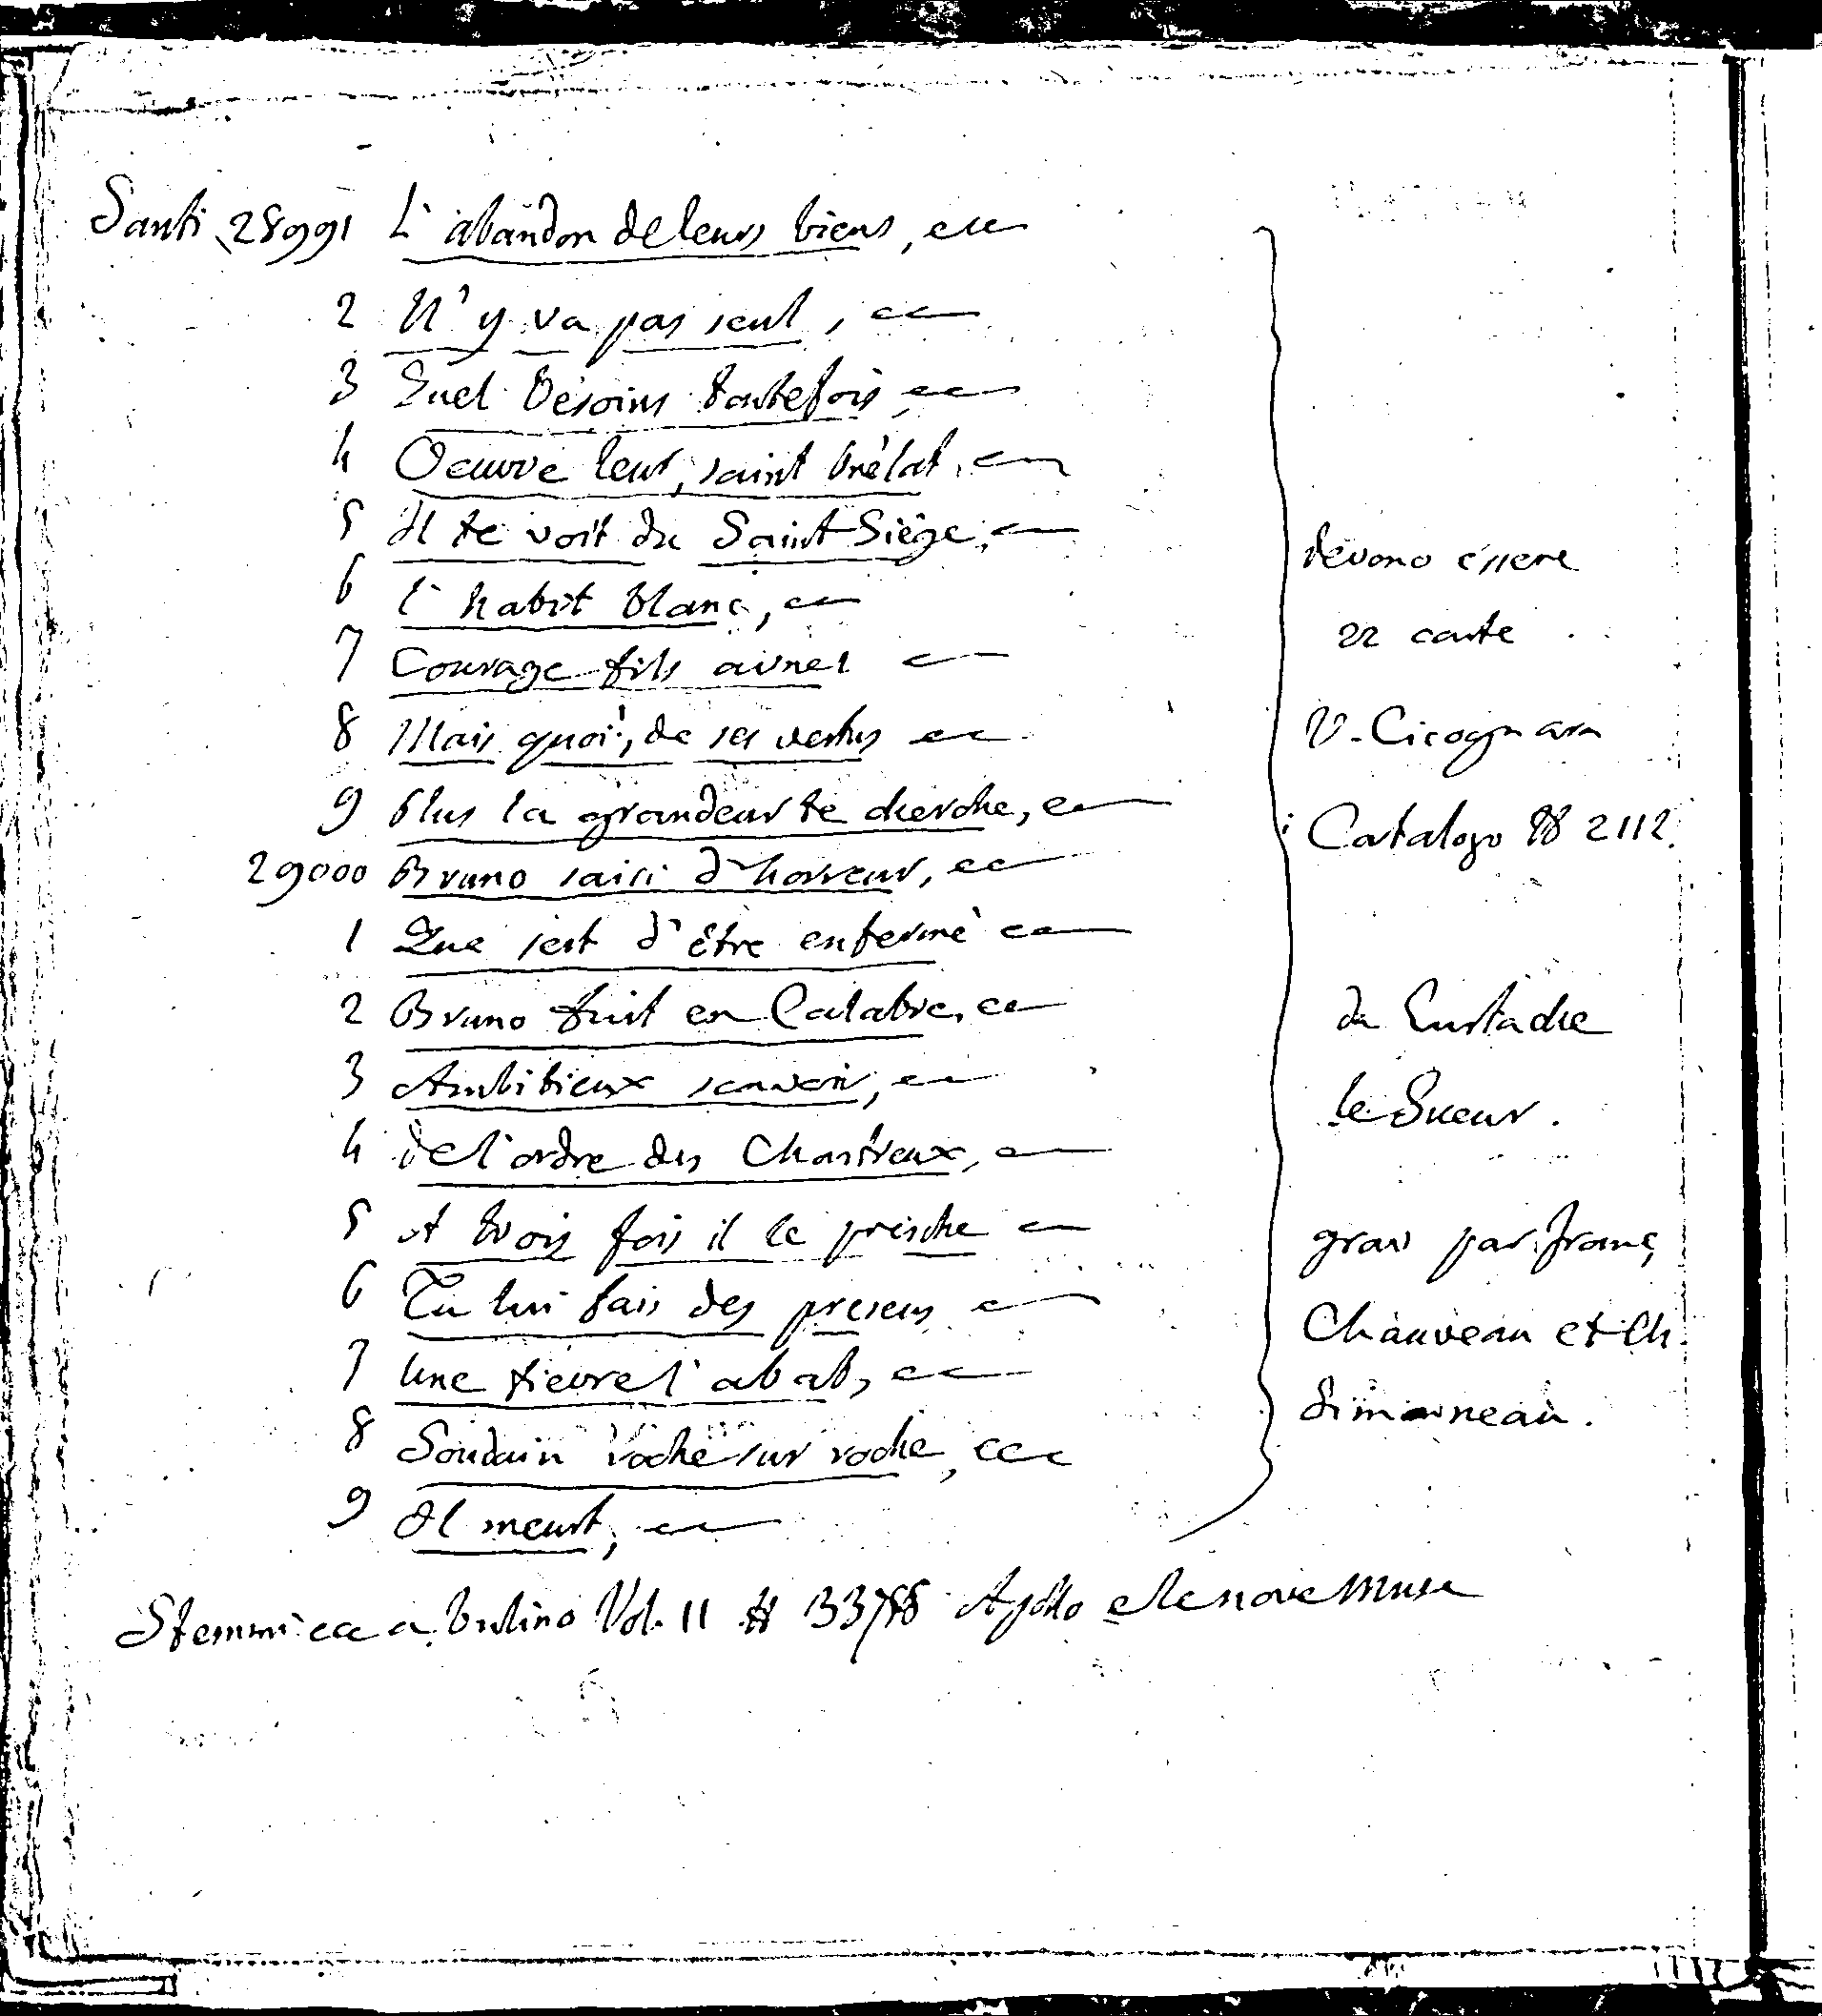 Santi 28991 L'abandon de leurs biens, ecc
2 N'y va pas seul, ecc
3 Quel besoins toutefois, ecc
4 Oeuvre leur, saint Prélat, ecc
5 Il te voit du Saint Siège, ecc
6 L'habit blanc, ecc
7 Courage fils aimer ecc
8 Mais quoi!, de ses vertus ecc
9 Plus la grandeur te cherche, ecc
29000 Bruno saisi d'horreur, ecc
1 Que sert d'être enfermé ecc
2 Bruno fuit en Calabre, ecc
3 Ambitieux ecc
4 de l'ordre des Chartreux, ecc
5 trois fois il le presche ecc
6 Tu lui fais des presens ecc
7 Une fievre l'abat, ecc
8 Soudain roche sur roche, ecc
9 Il meurt, ecc
devono essere
22 carte
V. Cicognara
Catalogo N 2112.
da Eustache
le Sueur.
grav par Franç
Chauveau et Ch.
Simonneau.
Stemmi ecc a bulino Vol. 11 # Apollo e le nove Muse